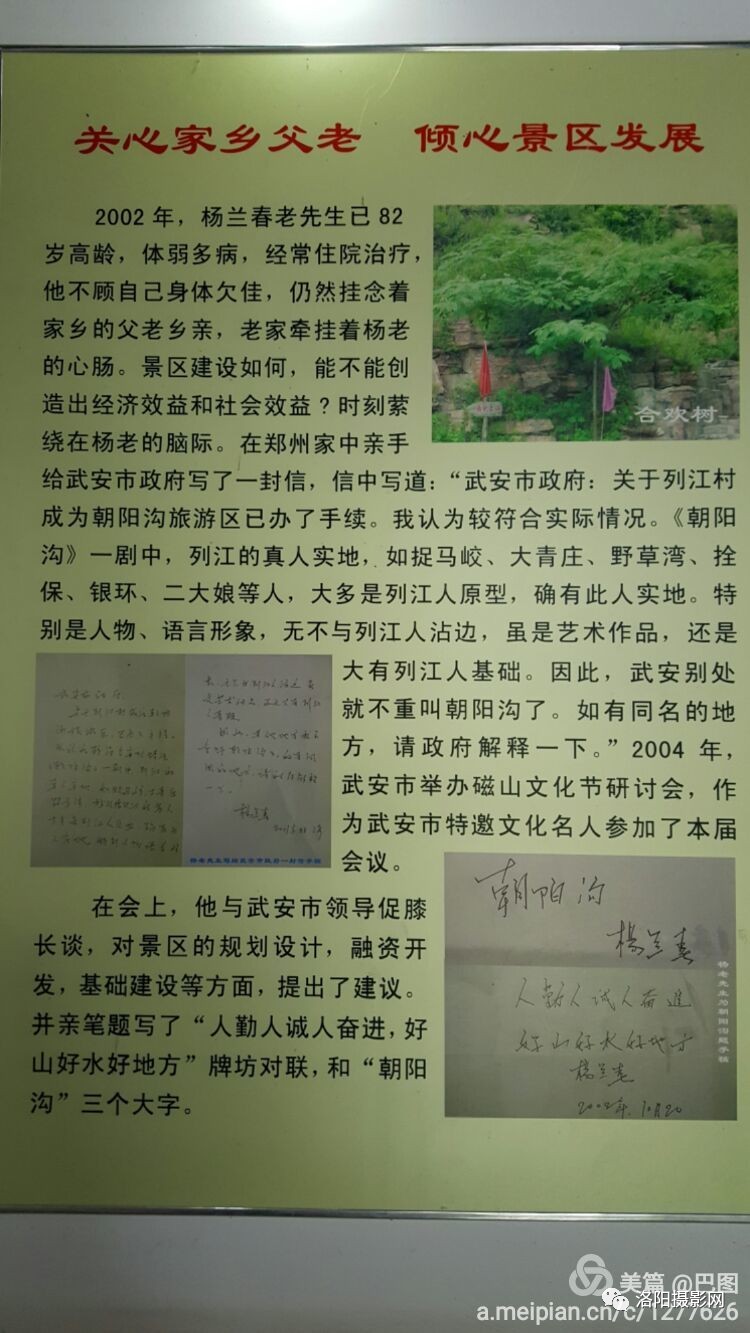 关心家乡父老 倾心景区发展
2002年，杨兰春老先生已82
岁高龄，体弱多病，经常住院治疗，
他不顾自己身体欠佳，仍然挂念着
家乡的父老乡亲，老家牵挂着杨老
的心肠。景区建设如何，能不能创
造出经济效益和社会效益？时刻萦
绕在杨老的脑际。在郑州家中亲手
合欢树
给武安市政府写了一封信，信中写道：“武安市政府：关于列江村
成为朝阳沟旅游区已办了手续。我认为较符合实际情况。《朝阳
沟》一剧中，列江的真人实地，如捉马峧、大青庄、野草湾、拴
保、银环、二大娘等人，大多是列江人原型，确有此人实地。特
别是人物、语言形象，无不与列江人沾边，虽是艺术作品，还是
大有列江人基础。因此，武安别处
就不重叫朝阳沟了。如有同名的地
方，请政府解释一下。”2004年，
武安市举办磁山文化节研讨会，作
为武安市特邀文化名人参加了本届
会议。
杨兰春
杨老先生写给武安市政府一封信手稿
在会上，他与武安市领导促膝
长谈，对景区的规划设计，融资开
发，基础建设等方面，提出了建议。
并亲笔题写了“人勤人诚人奋进，好
山好水好地方”牌坊对联，和“朝阳
沟”三个大字。
朝阳沟
杨兰春
人勤人诚人奋进
好山好水好地方
杨兰春
2002年.10月20
杨老先生为朝阳沟题手稿
美篇 @巴图
洛阳摄影网
a.meipian.cn/c/1277626